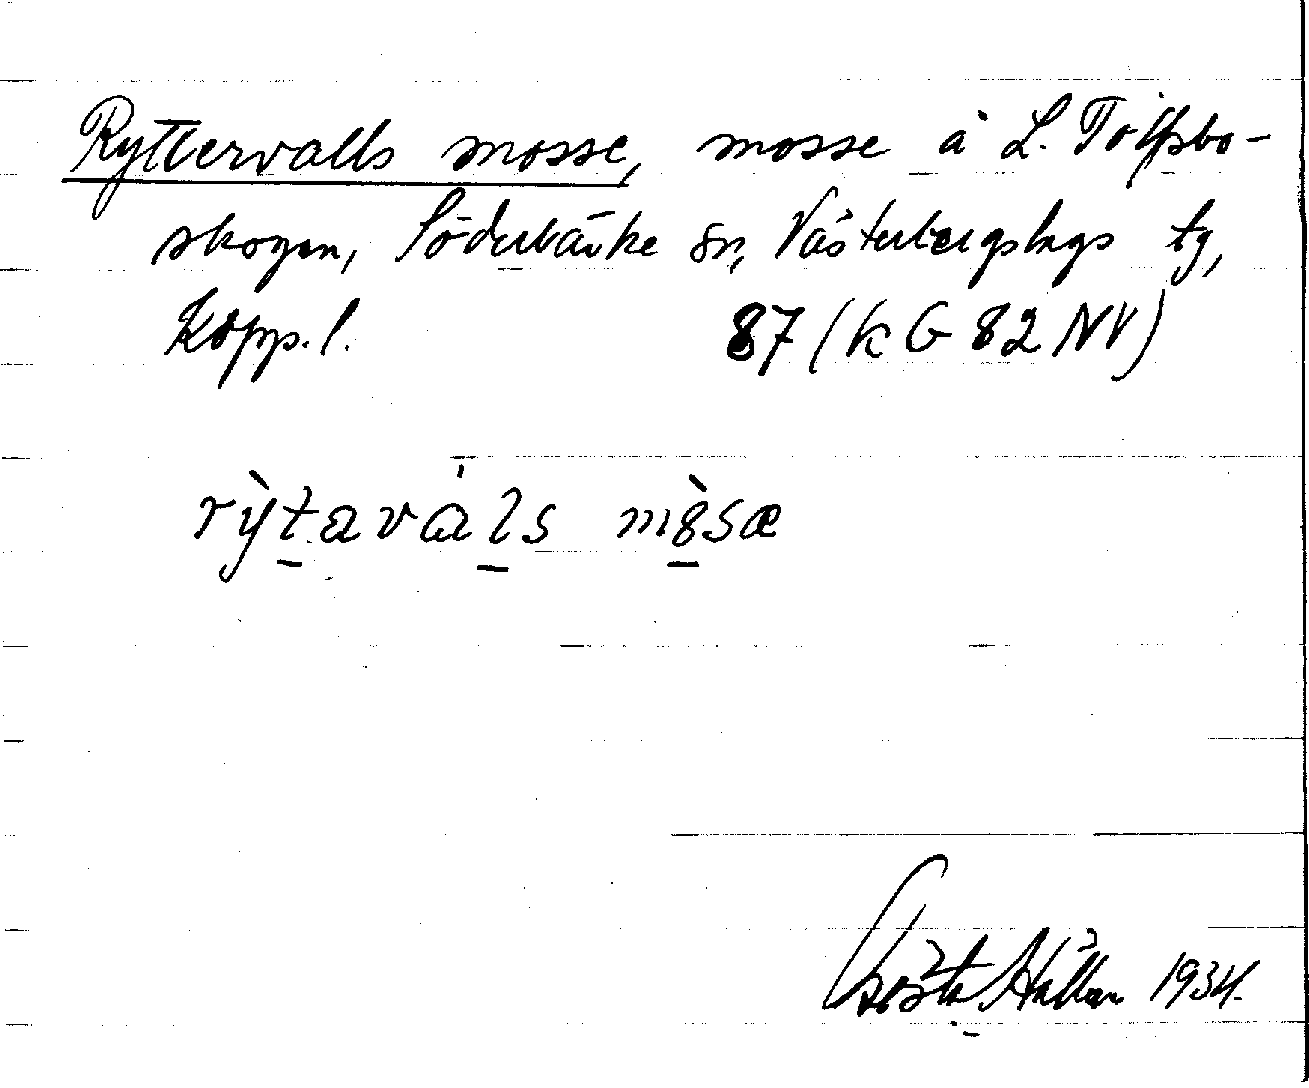 Ryttervalls mosse, mosse å L. Tolfsbo-
skogen, Söderbärke sn, Västerbergslags tg,
Kopp. l. 87 (k G 82 NV)
rỳtavá̇ls mòsæ
Gösta Hallan 1934.